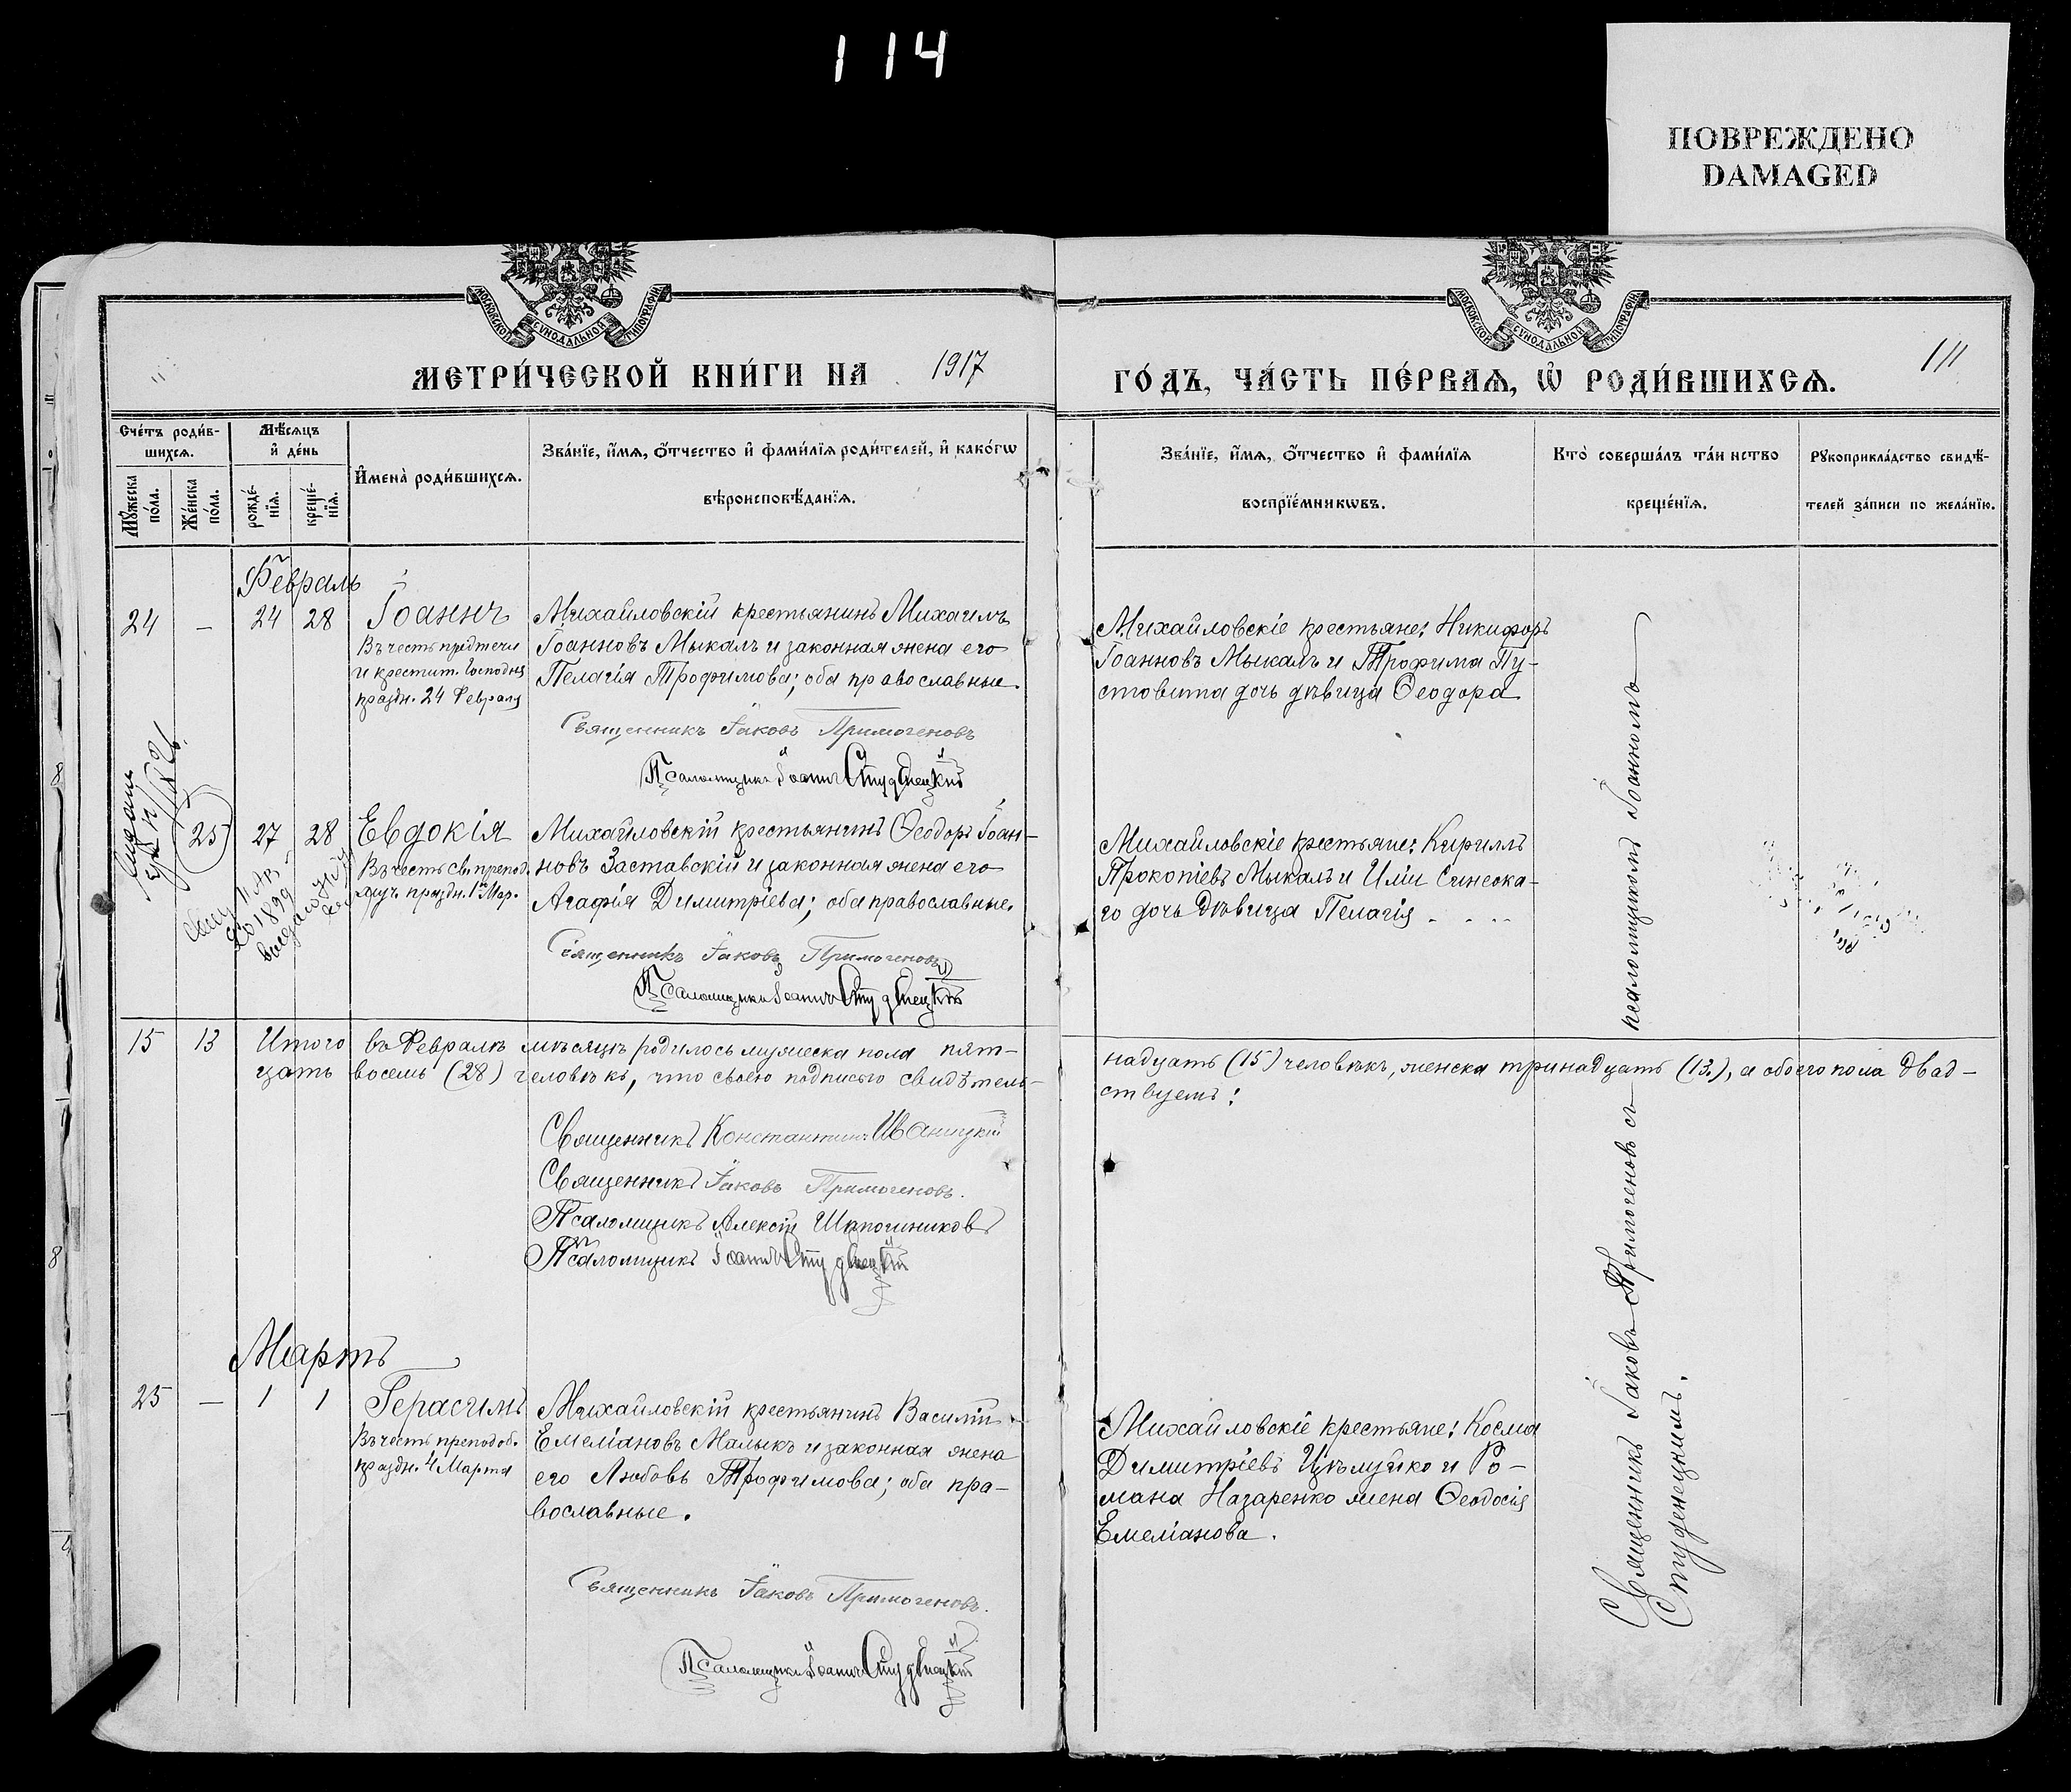 114
ПОВРЕЖДЕНО
DAMAGED
МОСКОВСКОЙ СѴНОДАЛЬНОЙ ТИПОГРАФІИ
МОСКОВСКОЙ СѴНОДАЛЬНОЙ ТИПОГРАФІИ
МЕТРИ́ЧЕСКОЙ КНИ́ГИ НА 1917
ГО́ДЪ, ЧА́СТЬ ПЕ́РВАѦ, Ѡ҆ РОДИ́ВШИХСѦ.
111
Сче́тъ роди́в-
шихсѧ.
Мꙋ́жеска по́ла.
Же́нска по́ла.
Мѣ́сѧцъ
и҆ де́нь
рожде́-
нїѧ.
креще́-
нїѧ.
И҆мена̀ роди́вшихсѧ.
Зва́нїе, и҆́мѧ, ѻ҆́тчество и҆ фами́лїѧ роди́телей, и҆ како́гѡ
вѣроисповѣ́данїѧ.
Зва́нїе, и҆́мѧ, ѻ҆́тчество и҆ фами́лїѧ
воспрїе́мникѡвъ.
Кто̀ соверша́лъ та́инство
креще́нїѧ.
Рꙋкоприкла́дство свидѣ́-
телей за́писи по жела́нїю.
Февраль
24 – 24 28 Іоаннъ
Въ честь предтечи
и крестит. Господня
праздн. 24 Февраля
Михайловскій крестьянинъ Михаилъ
Іоанновъ Мыкалъ и законная жена его
Пелагія Трофимова; оба православные.
Священникъ Іаковъ Примогеновъ
Псаломщикъ Іоаннъ Студенецкій
Михайловскіе крестьяне: Никифоръ
Іоанновъ Мыкалъ и Трофима Пу-
стовита дочь дѣвица Ѳеодора
25 27 28 Евдокія
Въ честь св. препод.
муч. праздн. 1го Мар.
Михайловскій крестьянинъ Ѳеодоръ Іоан-
новъ Заставскій и законная жена его
Агафія Димитріева; оба православные.
Священникъ Іаковъ Примогеновъ
Псаломщикъ Іоаннъ Студенецкій
Михайловскіе крестьяне: Кириллъ
Прокопіевъ Мыкалъ и Иліи Синеока-
го дочь дѣвица Пелагія
15 13 Итого въ Февралѣ мѣсяцѣ родилось мужеска пола пят-
надцать (15) человѣкъ, женска тринадцать (13.), а обоего пола двад-
цать восемь (28) человѣкъ, что своею подписью свидѣтель-
ствуемъ:
Священникъ Константинъ Иваницкій
Священникъ Іаковъ Примогеновъ.
Псаломщикъ Алексій Шапошниковъ
Псаломщикъ Іоаннъ Студенецкій
Мартъ
25 – 1 1 Герасимъ
Въ честь преподоб.
праздн. 4 Марта
Михайловскій крестьянинъ Василій
Емеліановъ Малыкъ и законная жена
его Любовь Трофимова; оба пра-
вославные.
Священникъ Іаковъ Примогеновъ.
Псаломщикъ Іоаннъ Студенецкій
Михайловскіе крестьяне: Косма
Димитріевъ Цѣлуйко и Ро-
мана Назаренко жена Ѳеодосія
Емеліанова.
Священникъ Іаковъ Примогеновъ съ псаломщикомъ Іоанномъ
Студенецкимъ.